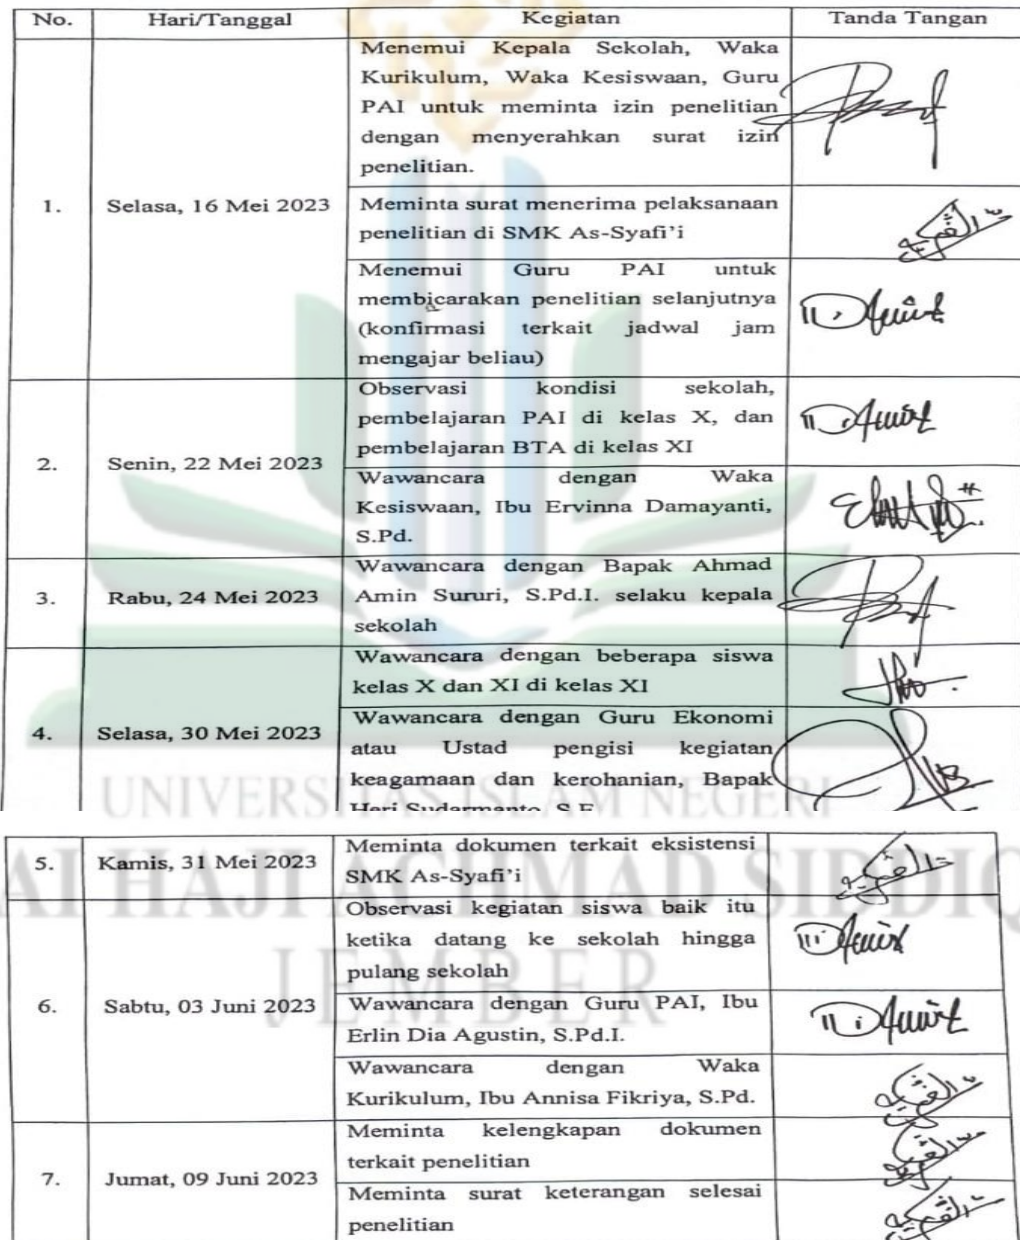 No. Hari/Tanggal Kegiatan Tanda Tangan
Menemui Kepala Sekolah, Waka
Kurikulum, Waka Kesiswaan, Guru
PAI untuk meminta izin penelitian
dengan menyerahkan surat izin
penelitian.
1. Selasa, 16 Mei 2023
Meminta surat menerima pelaksanaan
penelitian di SMK As-Syafi'i
Menemui Guru PAI untuk
membicarakan penelitian selanjutnya
(konfirmasi terkait jadwal jam
mengajar beliau)
2. Senin, 22 Mei 2023
Observasi kondisi sekolah,
pembelajaran PAI di kelas X, dan
pembelajaran BTA di kelas XI
Wawancara dengan Waka
Kesiswaan, Ibu Ervinna Damayanti,
S.Pd.
3. Rabu, 24 Mei 2023
Wawancara dengan Bapak Ahmad
Amin Sururi, S.Pd.I. selaku kepala
sekolah
4. Selasa, 30 Mei 2023
Wawancara dengan beberapa siswa
kelas X dan XI di kelas XI
Wawancara dengan Guru Ekonomi
atau Ustad pengisi kegiatan
keagamaan dan kerohanian, Bapak
Heri Sudarmanto, S.E.
UNIVERSITAS ISLAM NEGERI
5. Kamis, 31 Mei 2023
Meminta dokumen terkait eksistensi
SMK As-Syafi'i
AI HAJI ACHMAD SIDDIQ
JEMBER
6. Sabtu, 03 Juni 2023
Observasi kegiatan siswa baik itu
ketika datang ke sekolah hingga
pulang sekolah
Wawancara dengan Guru PAI, Ibu
Erlin Dia Agustin, S.Pd.I.
Wawancara dengan Waka
Kurikulum, Ibu Annisa Fikriya, S.Pd.
7. Jumat, 09 Juni 2023
Meminta kelengkapan dokumen
terkait penelitian
Meminta surat keterangan selesai
penelitian